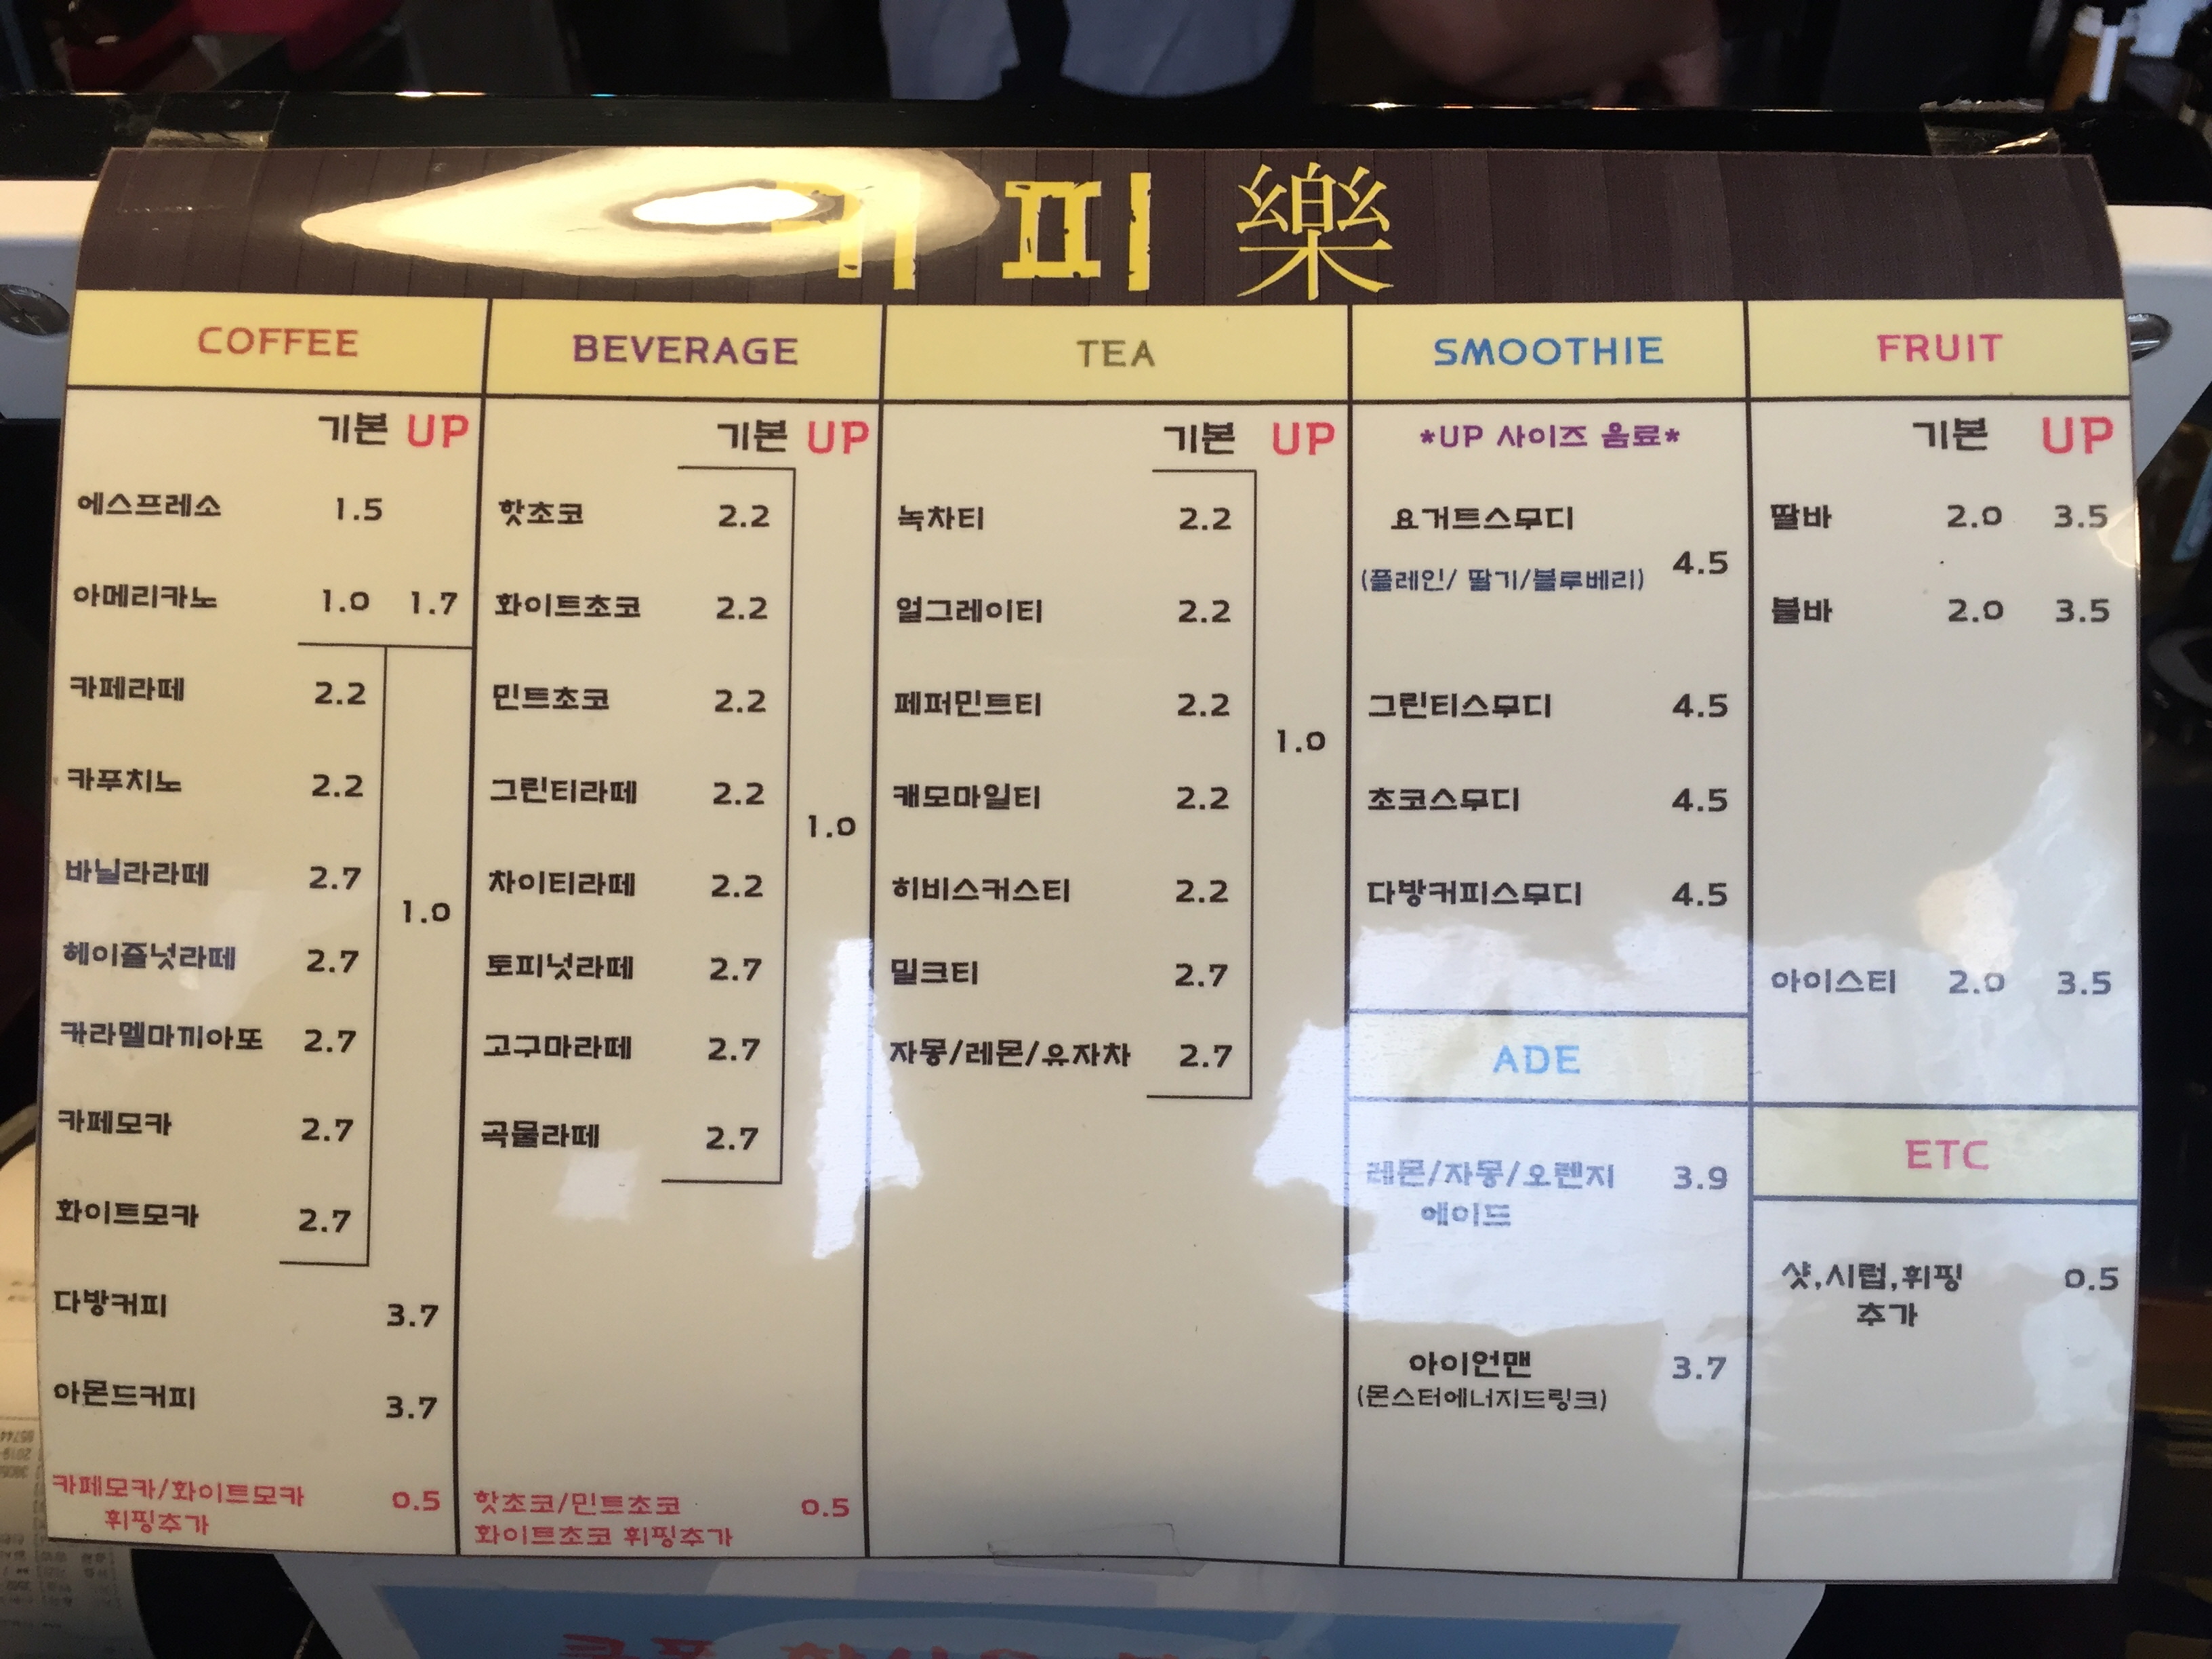 커피 樂
COFFEE
기본 UP
에스프레소 1.5
아메리카노 1.0 1.7
카페라떼 2.2
카푸치노 2.2
바닐라라떼 2.7
1.0
헤이즐넛라떼 2.7
카라멜마끼아또 2.7
카페모카 2.7
화이트모카 2.7
다방커피 3.7
아몬드커피 3.7
카페모카/화이트모카 0.5
휘핑추가
BEVERAGE
기본 UP
핫초코 2.2
화이트초코 2.2
민트초코 2.2
그린티라떼 2.2
1.0
차이티라떼 2.2
토피넛라떼 2.7
고구마라떼 2.7
곡물라떼 2.7
핫초코/민트초코 0.5
화이트초코 휘핑추가
TEA
기본 UP
녹차티 2.2
얼그레이티 2.2
페퍼민트티 2.2
1.0
캐모마일티 2.2
히비스커스티 2.2
밀크티 2.7
자몽/레몬/유자차 2.7
SMOOTHIE
*UP 사이즈 음료*
요거트스무디
4.5
(플레인/ 딸기/블루베리)
그린티스무디 4.5
초코스무디 4.5
다방커피스무디 4.5
ADE
레몬/자몽/오렌지 3.9
에이드
아이언맨 3.7
(몬스터에너지드링크)
FRUIT
기본 UP
딸바 2.0 3.5
블바 2.0 3.5
아이스티 2.0 3.5
ETC
샷,시럽,휘핑 0.5
추가